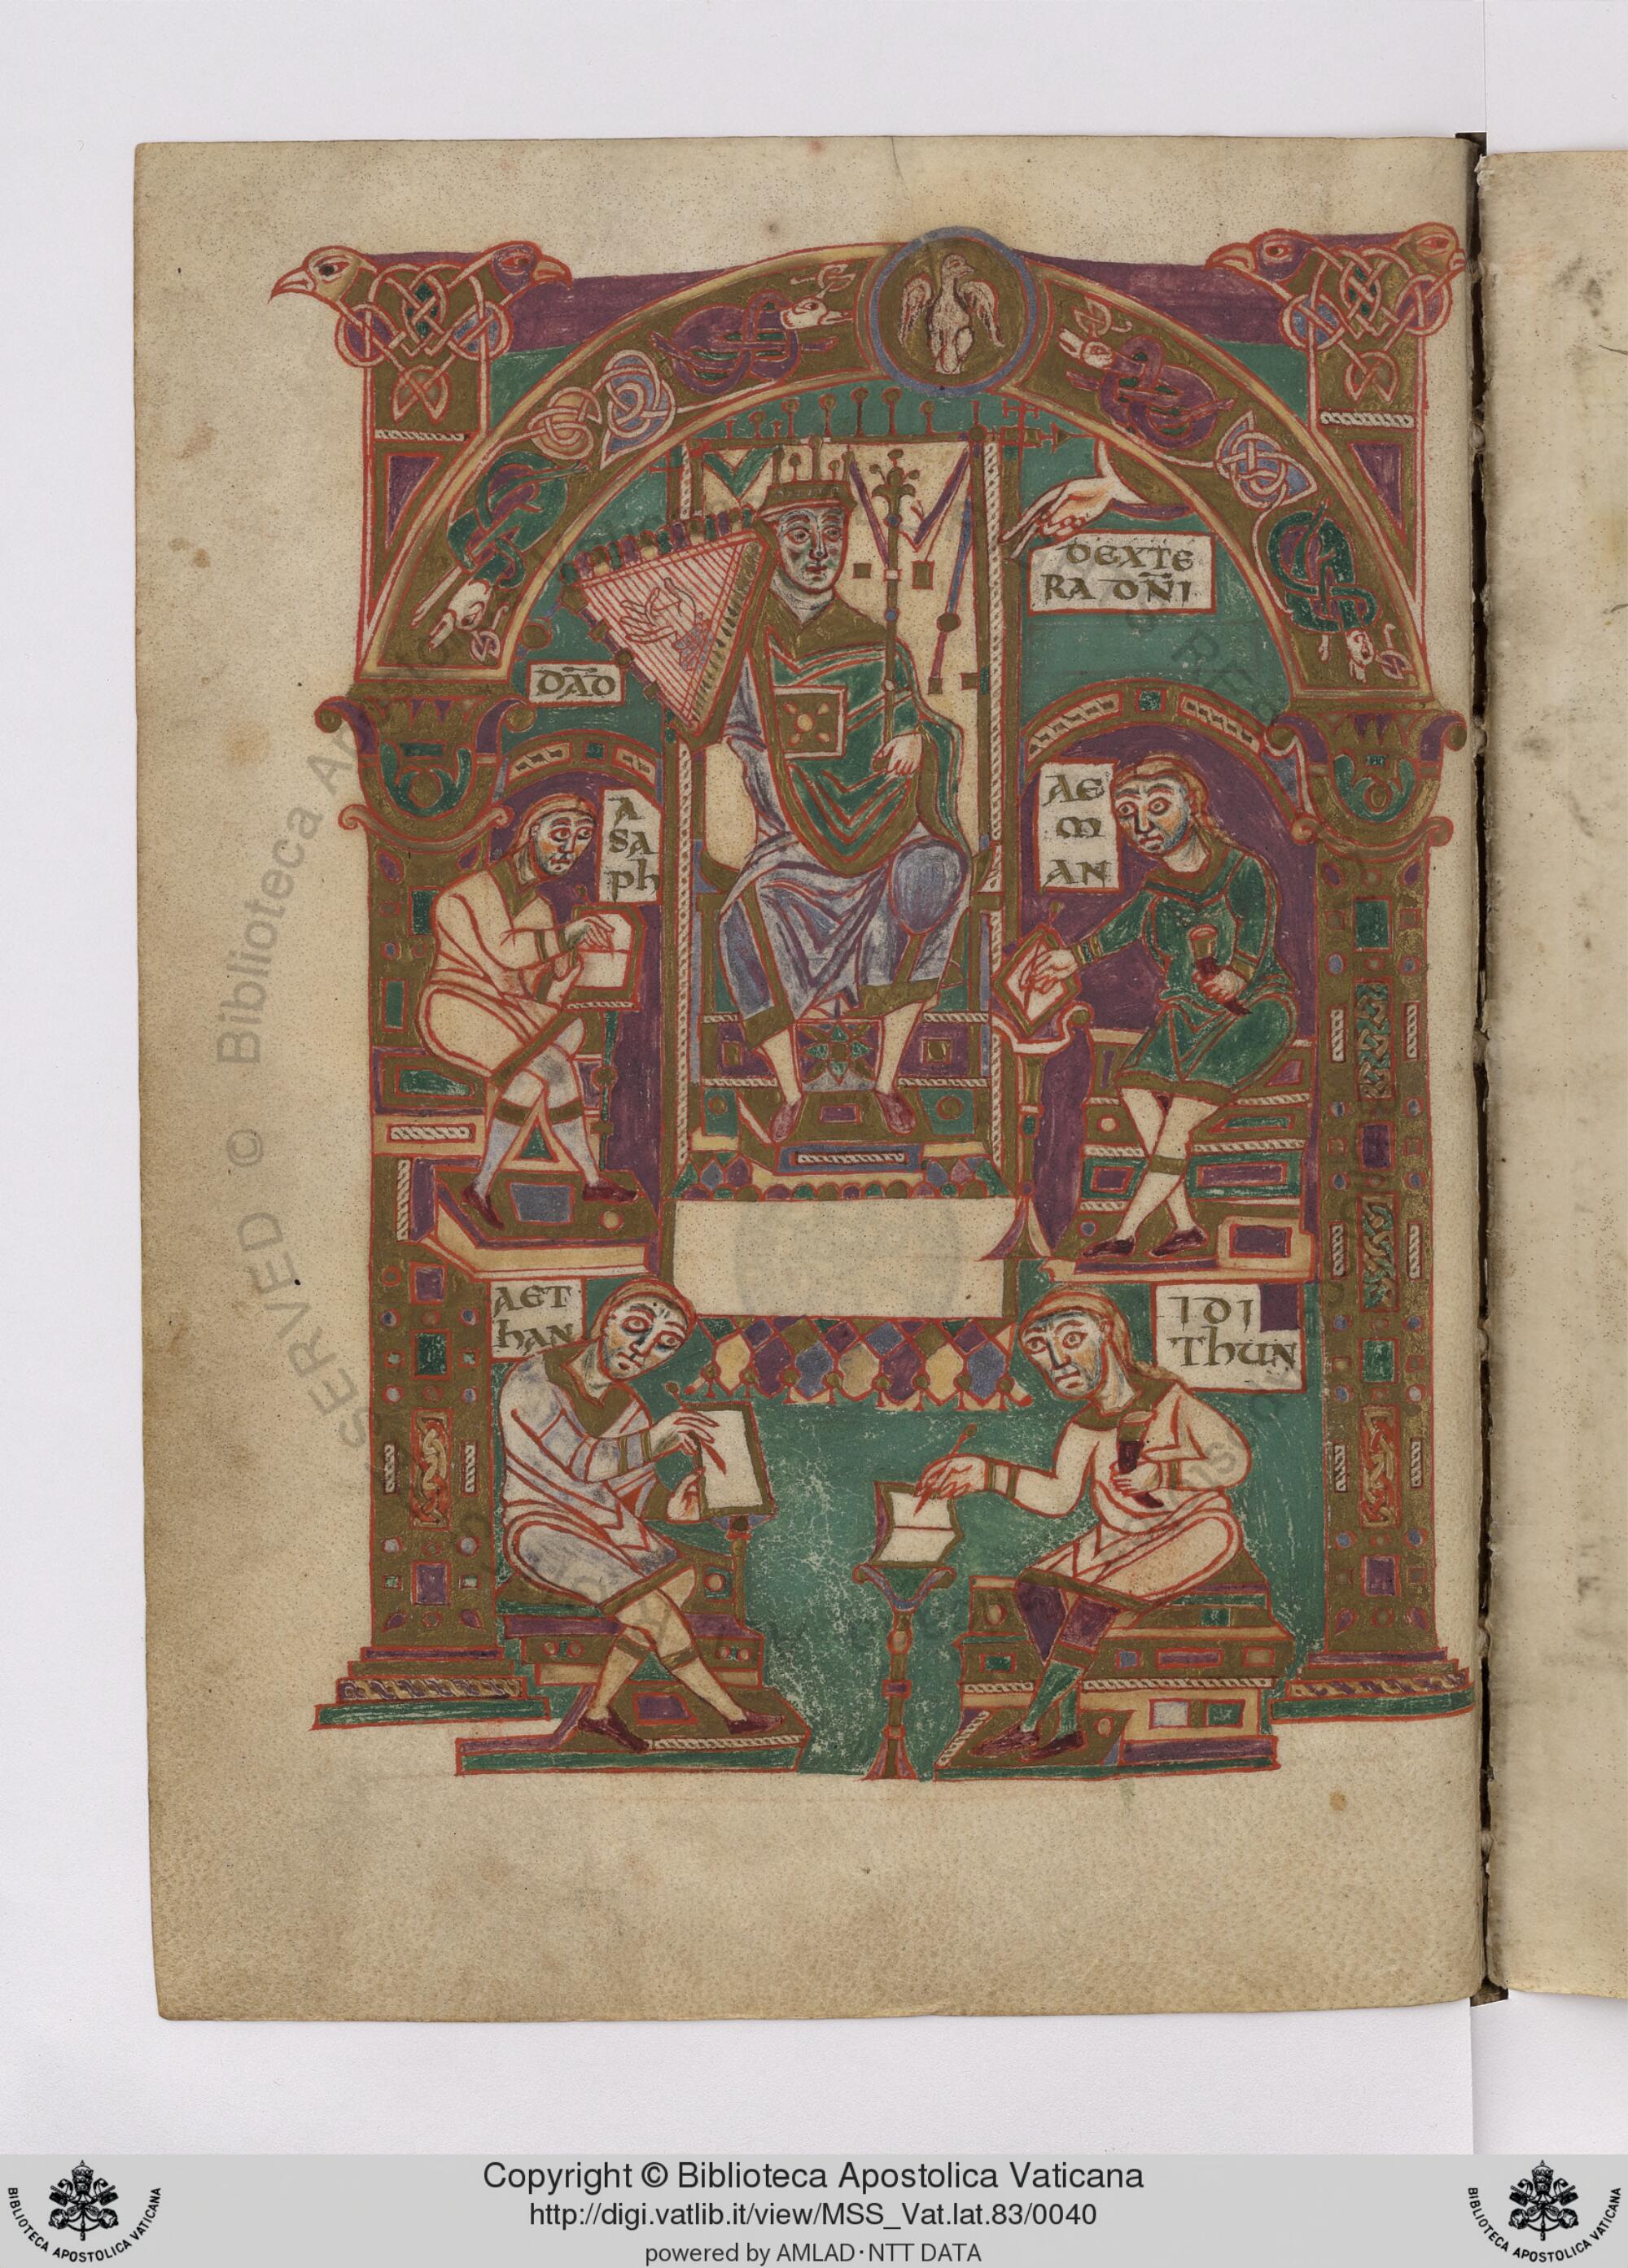 DEXTE
RA DN̄I
DĀD
A
SA
ph
AE
M
AN
AET
hAN
IDI
ThUN
Copyright © Biblioteca Apostolica Vaticana
http://digi.vatlib.it/view/MSS_Vat.lat.83/0040
powered by AMLAD·NTT DATA
BIBLIOTECA APOSTOLICA VATICANA
BIBLIOTECA APOSTOLICA VATICANA